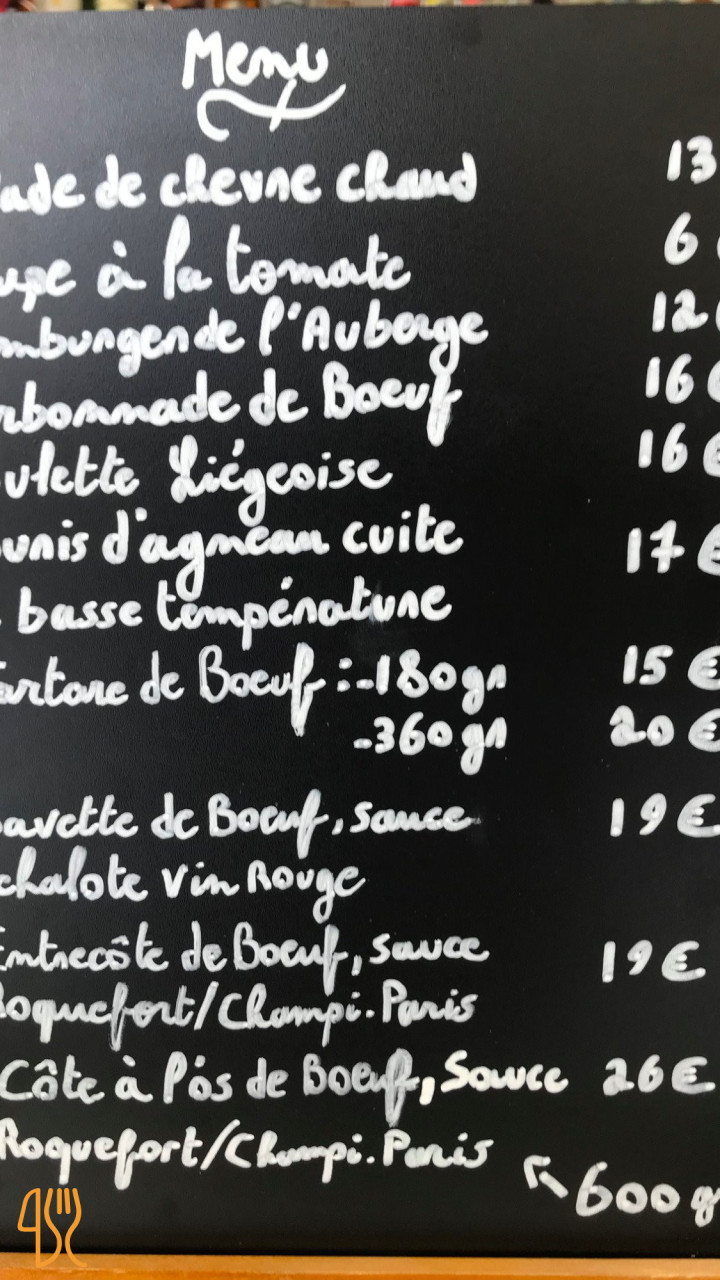 Menu
ade de chevre chaud 13
upe à la tomate 6
mburger de l'Auberge 12
rbonnade de Boeuf 16 €
ulette Liégeoise 16 €
uris d'agneau cuite 17 €
basse température
artare de Boeuf : -180 gr 15 €
-360 gr 20 €
avette de Boeuf, sauce 19 €
chalote vin Rouge
Entrecôte de Boeuf, sauce 19 €
Roquefort/Champi. Paris
Côte à l'os de Boeuf, Sauce 26 €
Roquefort/Champi. Paris
600 g